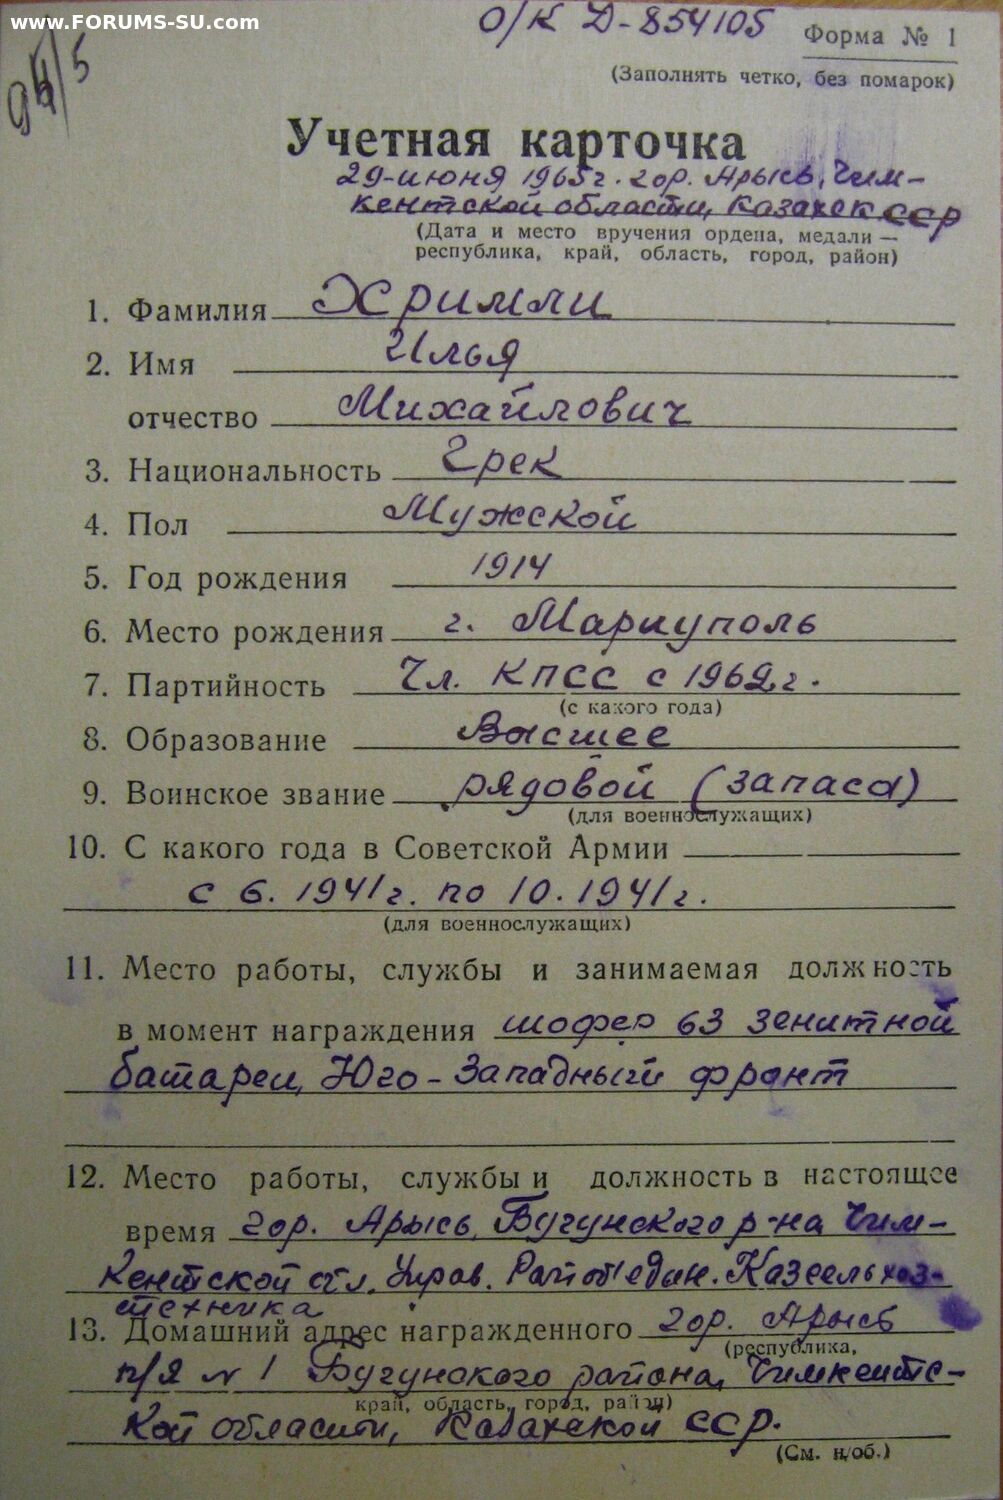 www.FORUMS-SU.com
О/К Д-854105
Форма № 1
94/5
(Заполнять четко, без помарок)
Учетная карточка
29-июня 1965г. гор. Арысь, Чим-
кентской области, Казахск ССР
(Дата и место вручения ордена, медали —
республика, край, область, город, район)
1. Фамилия Хримли
2. Имя Илья
отчество Михайлович
3. Национальность Грек
4. Пол Мужской
5. Год рождения 1914
6. Место рождения г. Мариуполь
7. Партийность Чл. КПСС с 1962г.
(с какого года)
8. Образование Высшее
9. Воинское звание рядовой (запаса)
(для военнослужащих)
10. С какого года в Советской Армии
с 6. 1941г. по 10. 1941г.
(для военнослужащих)
11. Место работы, службы и занимаемая должность
в момент награждения шофер 63 зенитной
батареи, Юго-Западный фронт
12. Место работы, службы и должность в настоящее
время гор. Арысь, Бугунского р-на Чим-
кентской обл. Управ. Райобъедин. Казсельхоз-
техника
13. Домашний адрес награжденного гор. Арысь
(республика,
п/я № 1 Бугунского района, Чимкентс-
край, область, город, район)
кой области, Казахской ССР.
(См. н/об.)